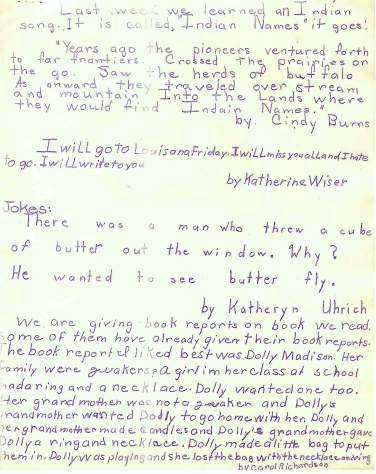 Last week we learned an Indian
song. It is called, "Indian Names" it goes:
"Years ago the pioneers ventured forth
to far frontiers. Crossed the prairies on
the go. Saw the herds of buffalo
As onward they traveled over stream
and mountain Into the Lands where
they would find Indain Names."
by: Cindy Burns
I will go to Louisana Friday. I will miss you all and I hate
to go. I will write to you
by Katherine Wiser
Jokes:
There was a man who threw a cube
of butter out the window. Why?
He wanted to see butter fly.
by Katheryn Uhrich
We are giving book reports on book we read.
some of them have already given their book reports.
The book report I liked best was Dolly Madison. Her
family were quakers, a girl in her class at school
had a ring and a necklace. Dolly wanted one too.
Her grandmother was not a quaker and Dolly's
grandmother wanted Dolly to go home with her. Dolly and
her grandmother made candles and Dolly's grandmother gave
Dolly a ring and necklace. Dolly made a little bag to put
them in. Dolly was playing and she lost the bag with the necklace and ring
by Carol Richardson